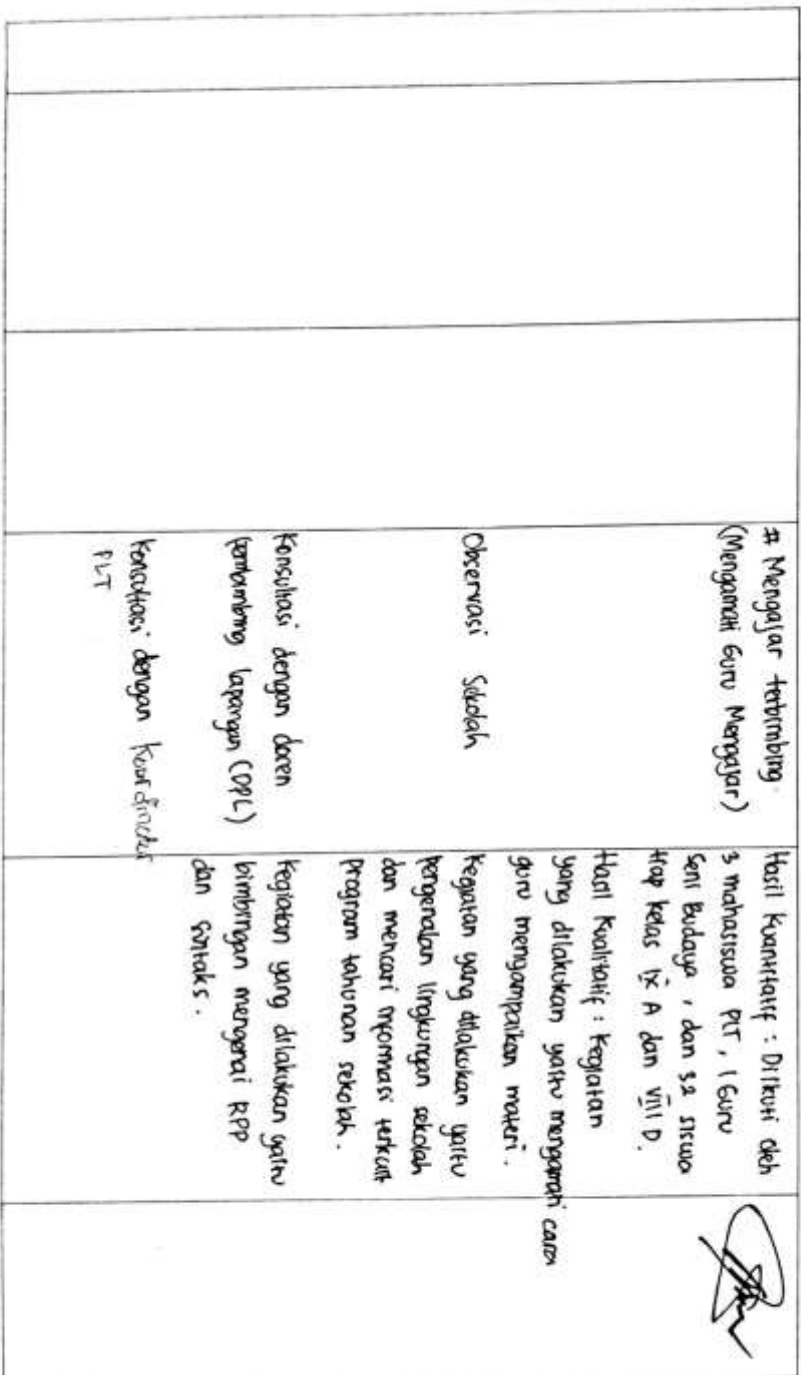 # Mengajar terbimbing
(Mengamati Guru Mengajar)
Hasil Kuantitatif : Diikuti oleh
3 mahasiswa PLT, 1 Guru
Seni Budaya, dan 32 siswa
tiap kelas IX A dan VIII D.
Hasil Kualitatif : Kegiatan
yang dilakukan yaitu mengamati cara
guru mengampaikan materi.
Observasi Sekolah
Kegiatan yang dilakukan yaitu
pengenalan lingkungan sekolah
dan mencari informasi terkait
program tahunan sekolah.
Konsultasi dengan dosen
pembimbing lapangan (DPL)
Kegiatan yang dilakukan yaitu
bimbingan mengenai RPP
dan sintaks.
Konsultasi dengan Koordinator
PLT